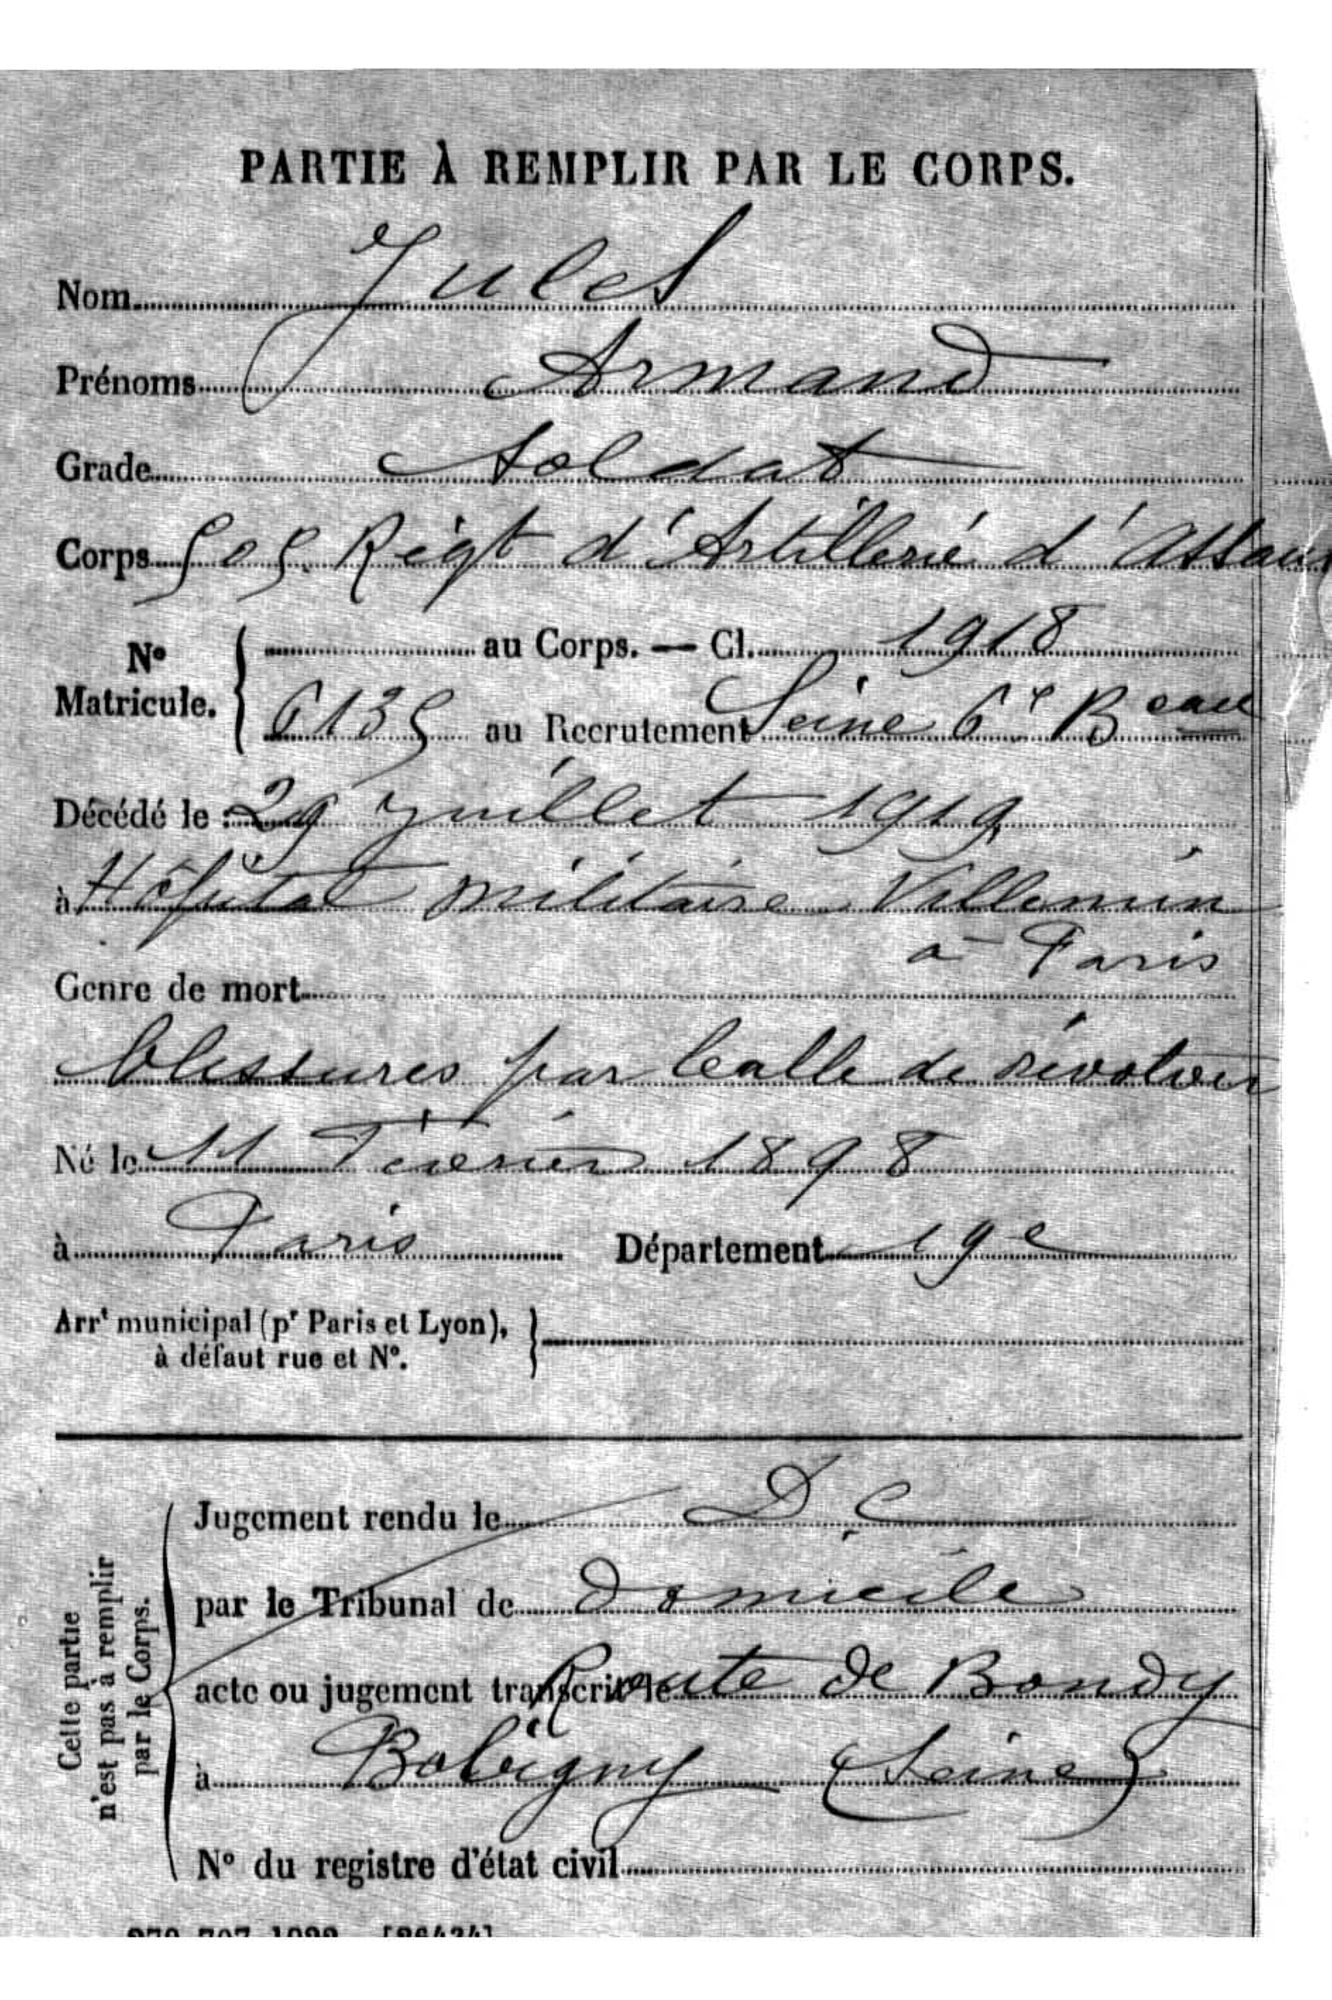 PARTIE À REMPLIR PAR LE CORPS.
Nom Jules
Prénoms Armand
Grade Soldat
Corps 505. Régt d'Artillerie d'Assaut
No Matricule. { au Corps. — Cl. 1918
6135 au Recrutement Seine 6e Beau
Décédé le : 29 juillet 1919
à Hôpital militaire Villemin
à Paris
Genre de mort
blessures par balle de révolver
Né le 11 Février 1898
à Paris Département 19e
Arrt municipal (pr Paris et Lyon),
à défaut rue et No.
Cette partie
n'est pas à remplir
par le Corps.
Jugement rendu le D.C
par le Tribunal de Domicile
acte ou jugement transcrit le Route de Bondy
à Bobigny (Seine)
No du registre d'état civil